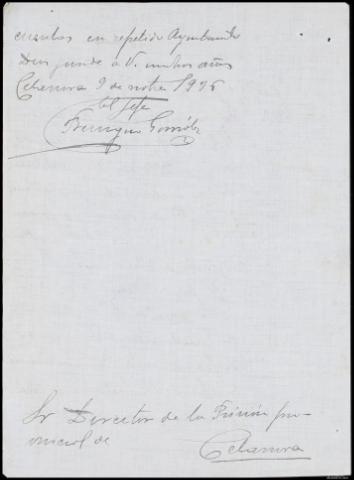 cuentas en repetido Ayuntamiento
Dios guarde a V. muchos años
Celanova 9 de novbre 1936
El Jefe
González
Sr Director de la Prisión pro-
vincial de
Celanova